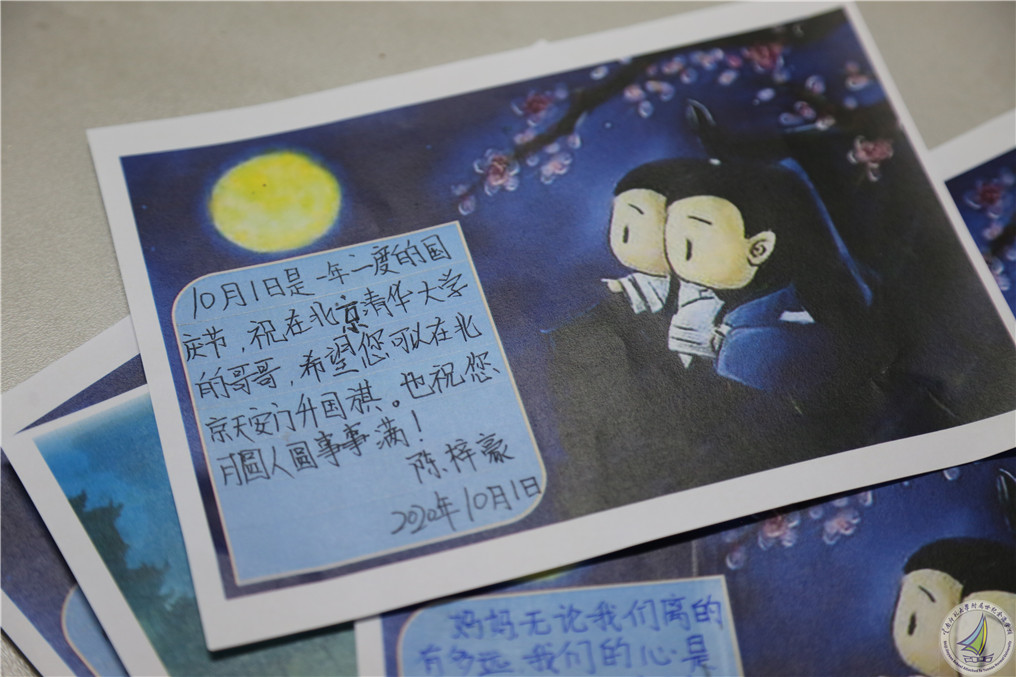 10月1日是一年一度的国
庆节,祝在北京清华大学
的哥哥,希望您可以在北
京天安门升国祺。也祝您
月圆人圆事事满!
陈梓豪
2020年10月1日
妈妈无论我们离的
有多远我们的心是